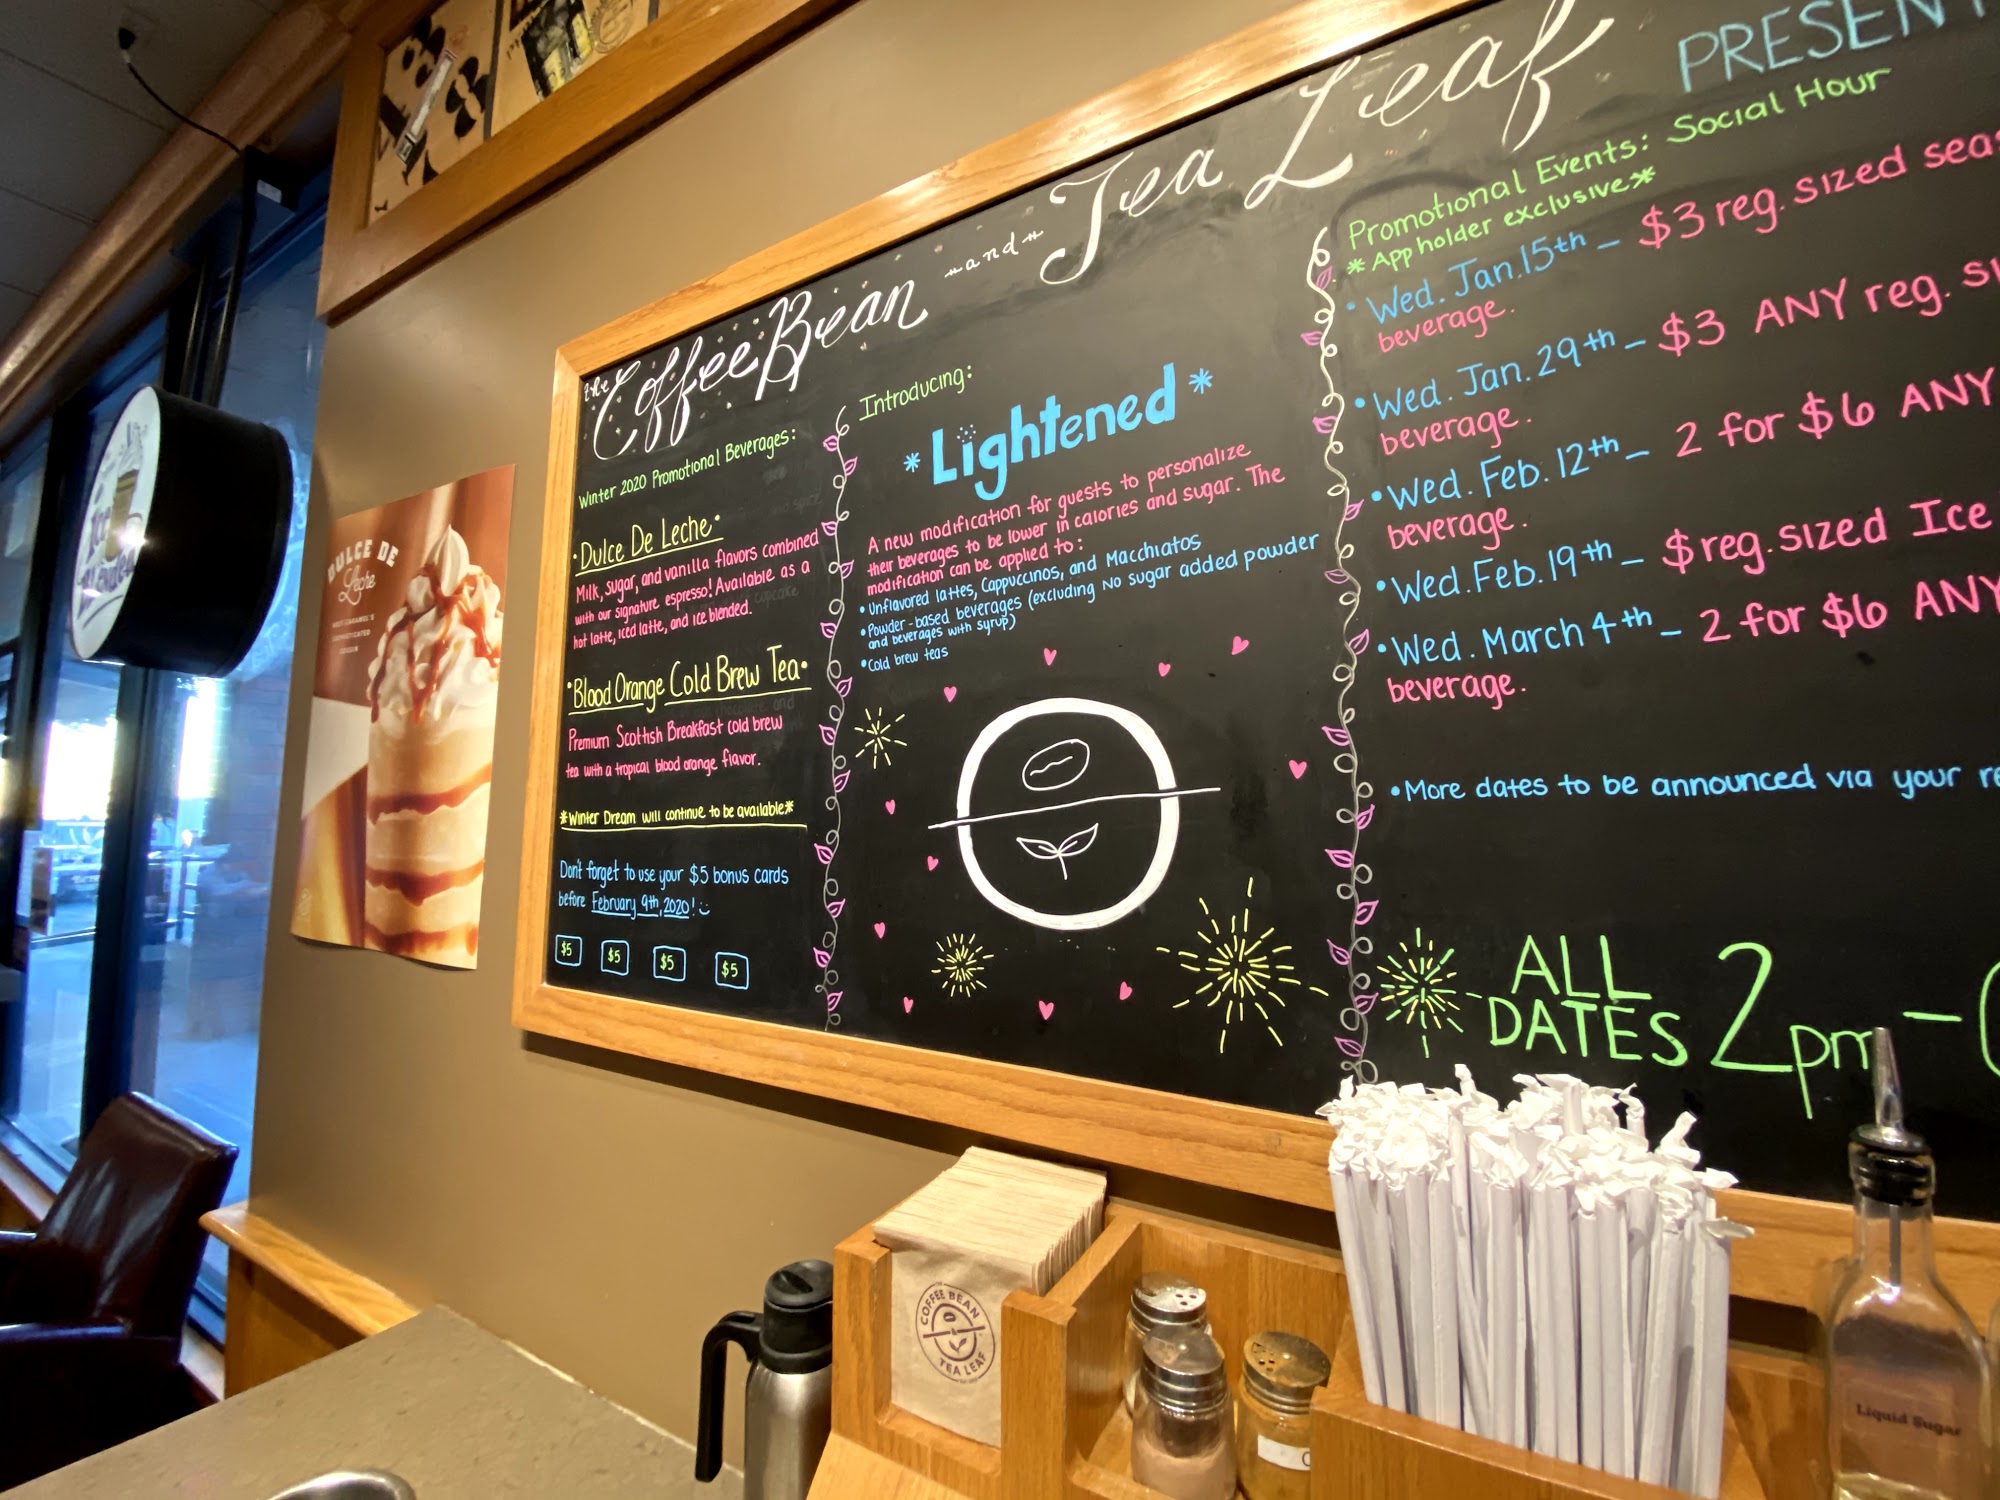 the Coffee Bean and Tea Leaf
PRESENT
Winter 2020 Promotional Beverages:
• Dulce De Leche •
Milk, sugar, and vanilla flavors combined
with our signature espresso! Available as a
hot latte, iced latte, and ice blended.
• Blood Orange Cold Brew Tea •
Premium Scottish Breakfast cold brew
tea with a tropical blood orange flavor.
*Winter Dream will continue to be available*
Don't forget to use your $5 bonus cards
before February 9th, 2020!
$5 $5 $5 $5
Introducing:
* Lightened *
A new modification for guests to personalize
their beverages to be lower in calories and sugar. The
modification can be applied to:
• Unflavored lattes, Cappuccinos, and Macchiatos
• Powder-based beverages (excluding No sugar added powder
and beverages with syrup)
• Cold brew teas
Promotional Events: Social Hour
* App holder exclusive *
• Wed. Jan. 15th - $3 reg. sized seas
beverage.
• Wed. Jan. 29th - $3 ANY reg. si
beverage.
• Wed. Feb. 12th - 2 for $6 ANY
beverage.
• Wed. Feb. 19th - $ reg. sized Ice
• Wed. March 4th - 2 for $6 ANY
beverage.
• More dates to be announced via your re
ALL
DATES 2pm -
DULCE DE
Leche
MEET CARAMEL'S
SOPHISTICATED
COUSIN
COFFEE BEAN
TEA LEAF
Liquid Sugar